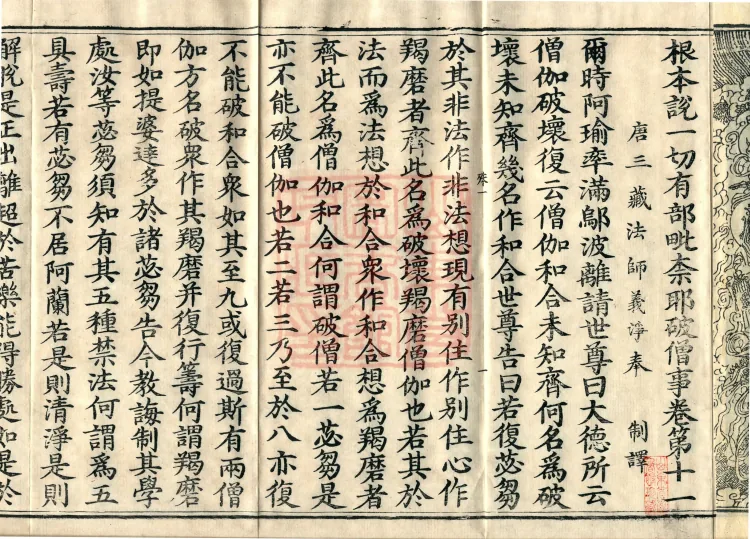 根本說一切有部毗柰耶破僧事卷第十一
唐三藏法師義淨奉 制譯
爾時阿瑜率滿鄔波離請世尊曰大德所云
僧伽破壞復云僧伽和合未知齊何名為破
壞未知齊幾名作和合世尊告曰若復苾芻
於其非法作非法想現有別住作別住心作
羯磨者齊此名為破壞羯磨僧伽也若其於
法而為法想於和合衆作和合想為羯磨者
齊此名為僧伽和合何謂破僧若一苾芻是
亦不能破僧伽也若二若三乃至於八亦復
不能破和合衆如其至九或復過斯有兩僧
伽方名破衆作其羯磨并復行籌何謂羯磨
即如提婆達多於諸苾芻告令教誨制其學
處汝等苾芻須知有其五種禁法何謂為五
具壽若有苾芻不居阿蘭若是則清淨是則
解脫是正出離超於苦樂能得勝處如是於